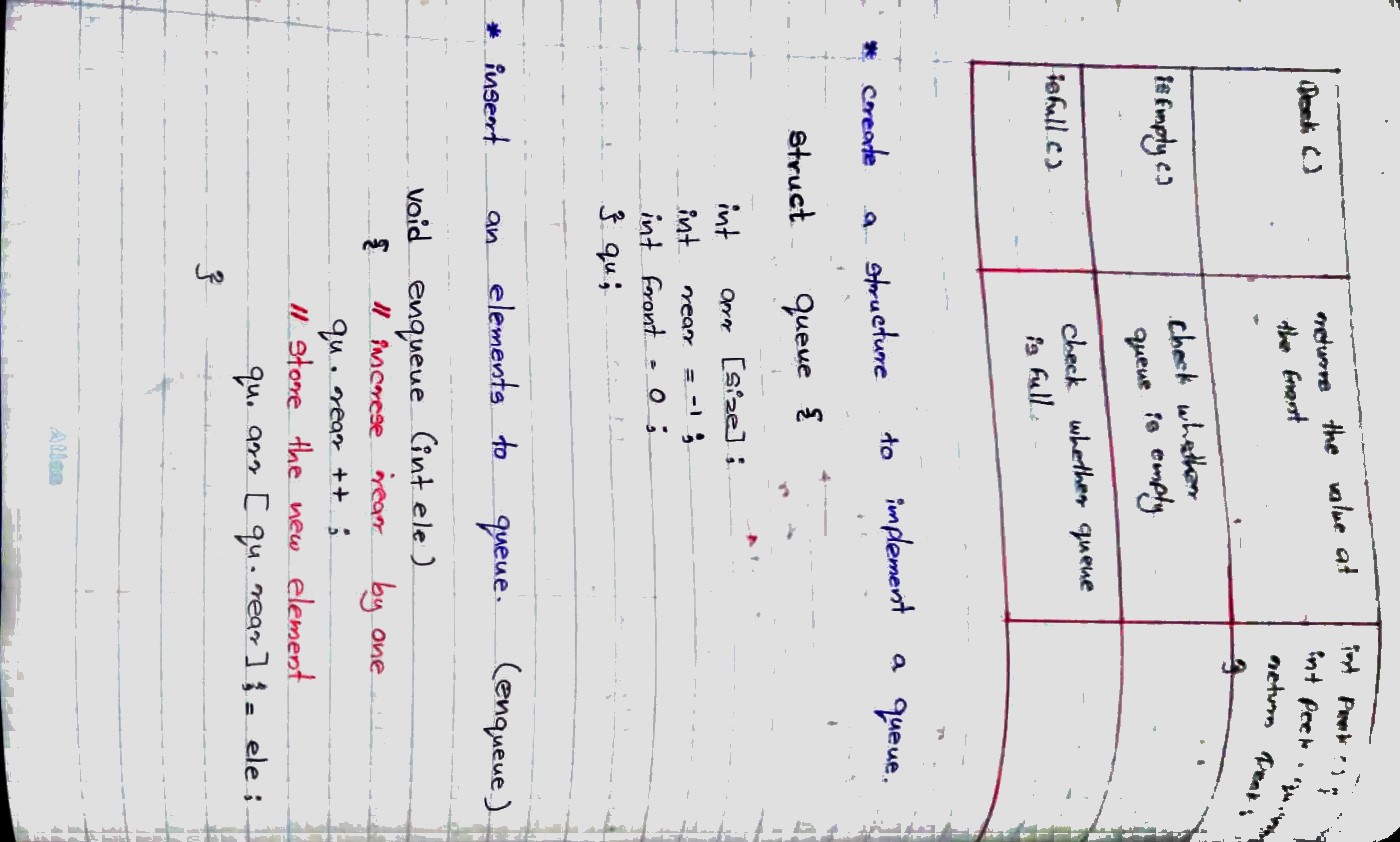 Peek ()
returns the value at
the front
int
int
return
}
isEmpty ()
check whether
queue is empty.
isfull ()
check whether queue
is full.
* create a structure to implement a queue.
struct queue {
int arr [size];
int rear = -1;
int front = 0;
} qu;
* insert an elements to queue. (enqueue)
void enqueue (int ele)
{ // increse rear by one
qu. rear ++ ;
// store the new element
qu. arr [ qu. rear ] ; = ele ;
}
Atlas